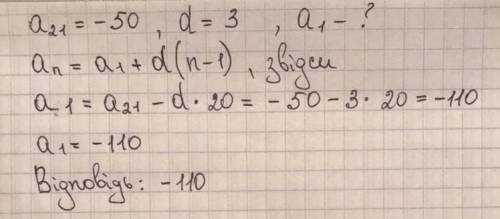 a₂₁ = -50 , d = 3 , a₁ - ?
aₙ = a₁ + d(n-1) , звідси
a₁ = a₂₁ - d · 20 = -50 - 3 · 20 = -110
a₁ = -110
Відповідь: -110